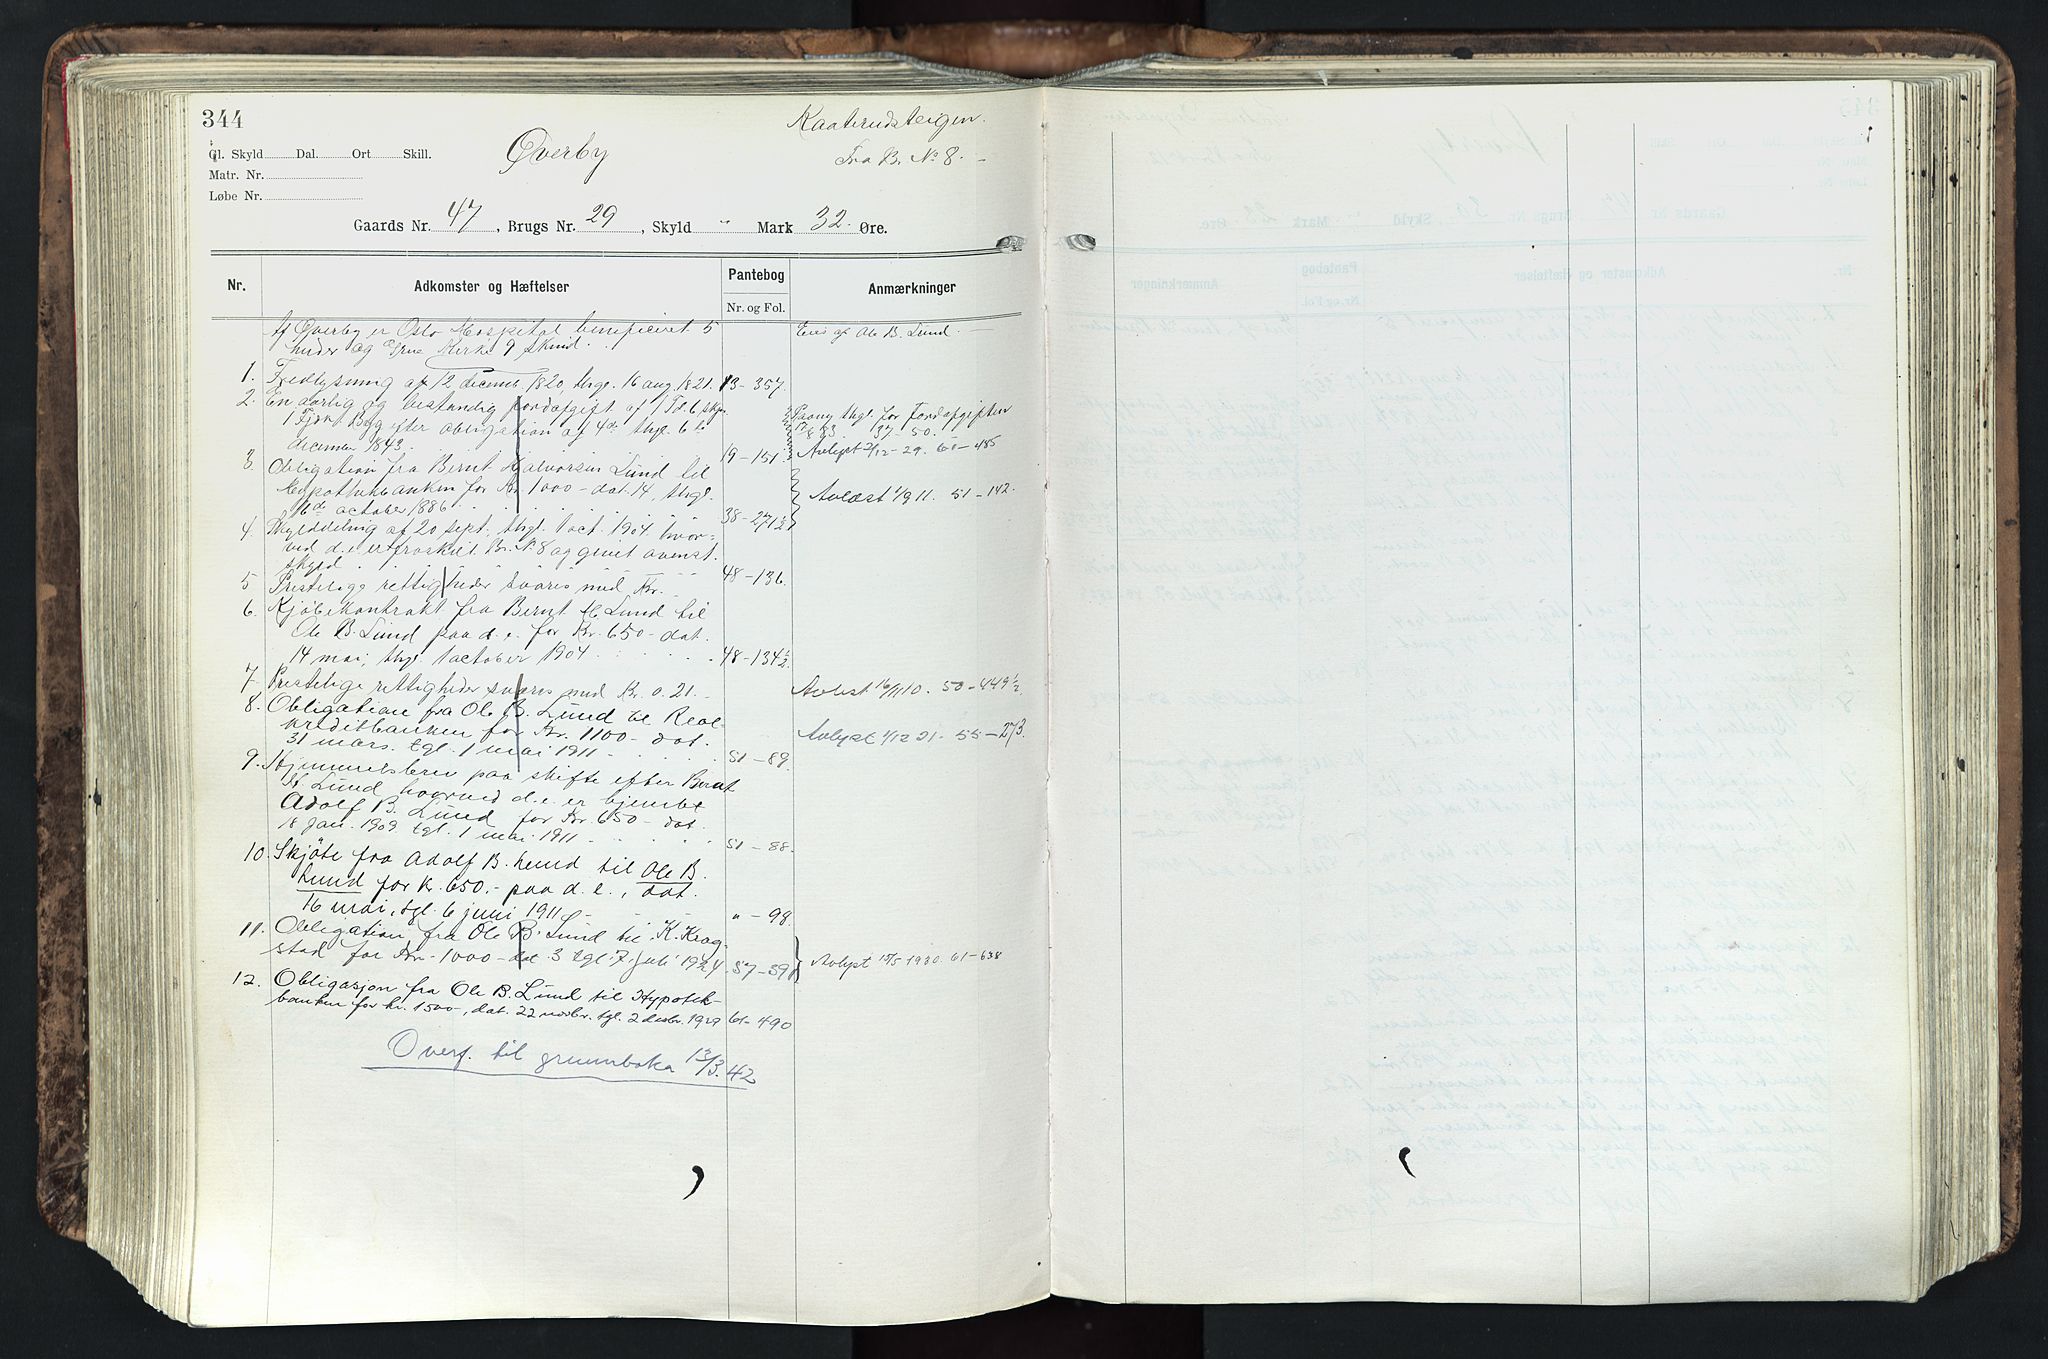 344
Kaaterudsteigen.
Gl. Skyld Dal. Ort Skill.
Øverby
Fra B. No 8. -
Matr. Nr.
Løbe Nr.
Gaards Nr. 47, Brugs Nr. 29, Skyld " Mark 32 Øre.
Nr. Adkomster og Hæftelser Pantebog Nr. og Fol. Anmærkninger
Af Øverby er Oslo Hospital beneficeret 5 Eies af Ole B. Lund.
huder og Grue Kirke 9 skind.
1. Fredlysning af 12 decemr. 1820, thgl. 16 aug. 1821. 13-357.
2. En aarlig og bestandig jordafgift af 1 Td. 6 skp. thgl. for Jordafgiften
1 Fjdk Byg efter obligation af 4de thgl. 6te 37-50.
december 1843. 19-151. Avlyst 2/12-29. 61-485
3. Obligation fra Bernt Halvorsen Lund til
Hypothekbanken for Kr. 1000- dat. 14, thgl. Avlæst 1/9 11. 51-142.
16de october 1886 38-271½
4. Skylddeling af 20 sept., thgl. 1 oct. 1904 hvor-
ved d.e. er fraskilt Br. No 8 og givet ovenst.
skyld 48-136.
5 Prestelige rettigheder svares med Kr.
6. Kjøbekontrakt fra Bernt H. Lund til
Ole B. Lund paa d.e. for Kr. 650- dat.
14 mai, thgl. 1 october 1904 48-134½
7. Prestelige rettigheder svares med Kr. 0.21.- Avlest 16/11 10. 50-449½
8. Obligation fra Ole B. Lund til Real-
kreditbanken for Kr. 1100- dat. Avlyst 1/12 21. 55-273.
31 mars. tgl. 1 mai 1911 51-89.
9. Hjemmelsbrev paa skifte efter Bernt
H. Lund hvorved d.e. er hjemlet
Adolf B. Lund for Kr. 650- dat.
18 jan. 1909. tgl. 1 mai 1911 51-88.
10. Skjöte fra Adolf B. Lund til Ole B.
Lund for k. 650.- paa d.e., dat.
16 mai, tgl. 6 juni 1911 " - 98.
11. Obligation fra Ole B. Lund til K. Krog-
stad for Kr. 1000- dat. 3 tgl. 7 juli 1924 57-591 Avlyst 15/5 1930. 61-638
12. Obligasjon fra Ole B. Lund til Hypotek-
banken for kr. 1500-, dat. 22 novbr. tgl. 2 desbr. 1929 61-490
Overf. til grunnboka 13/3.42